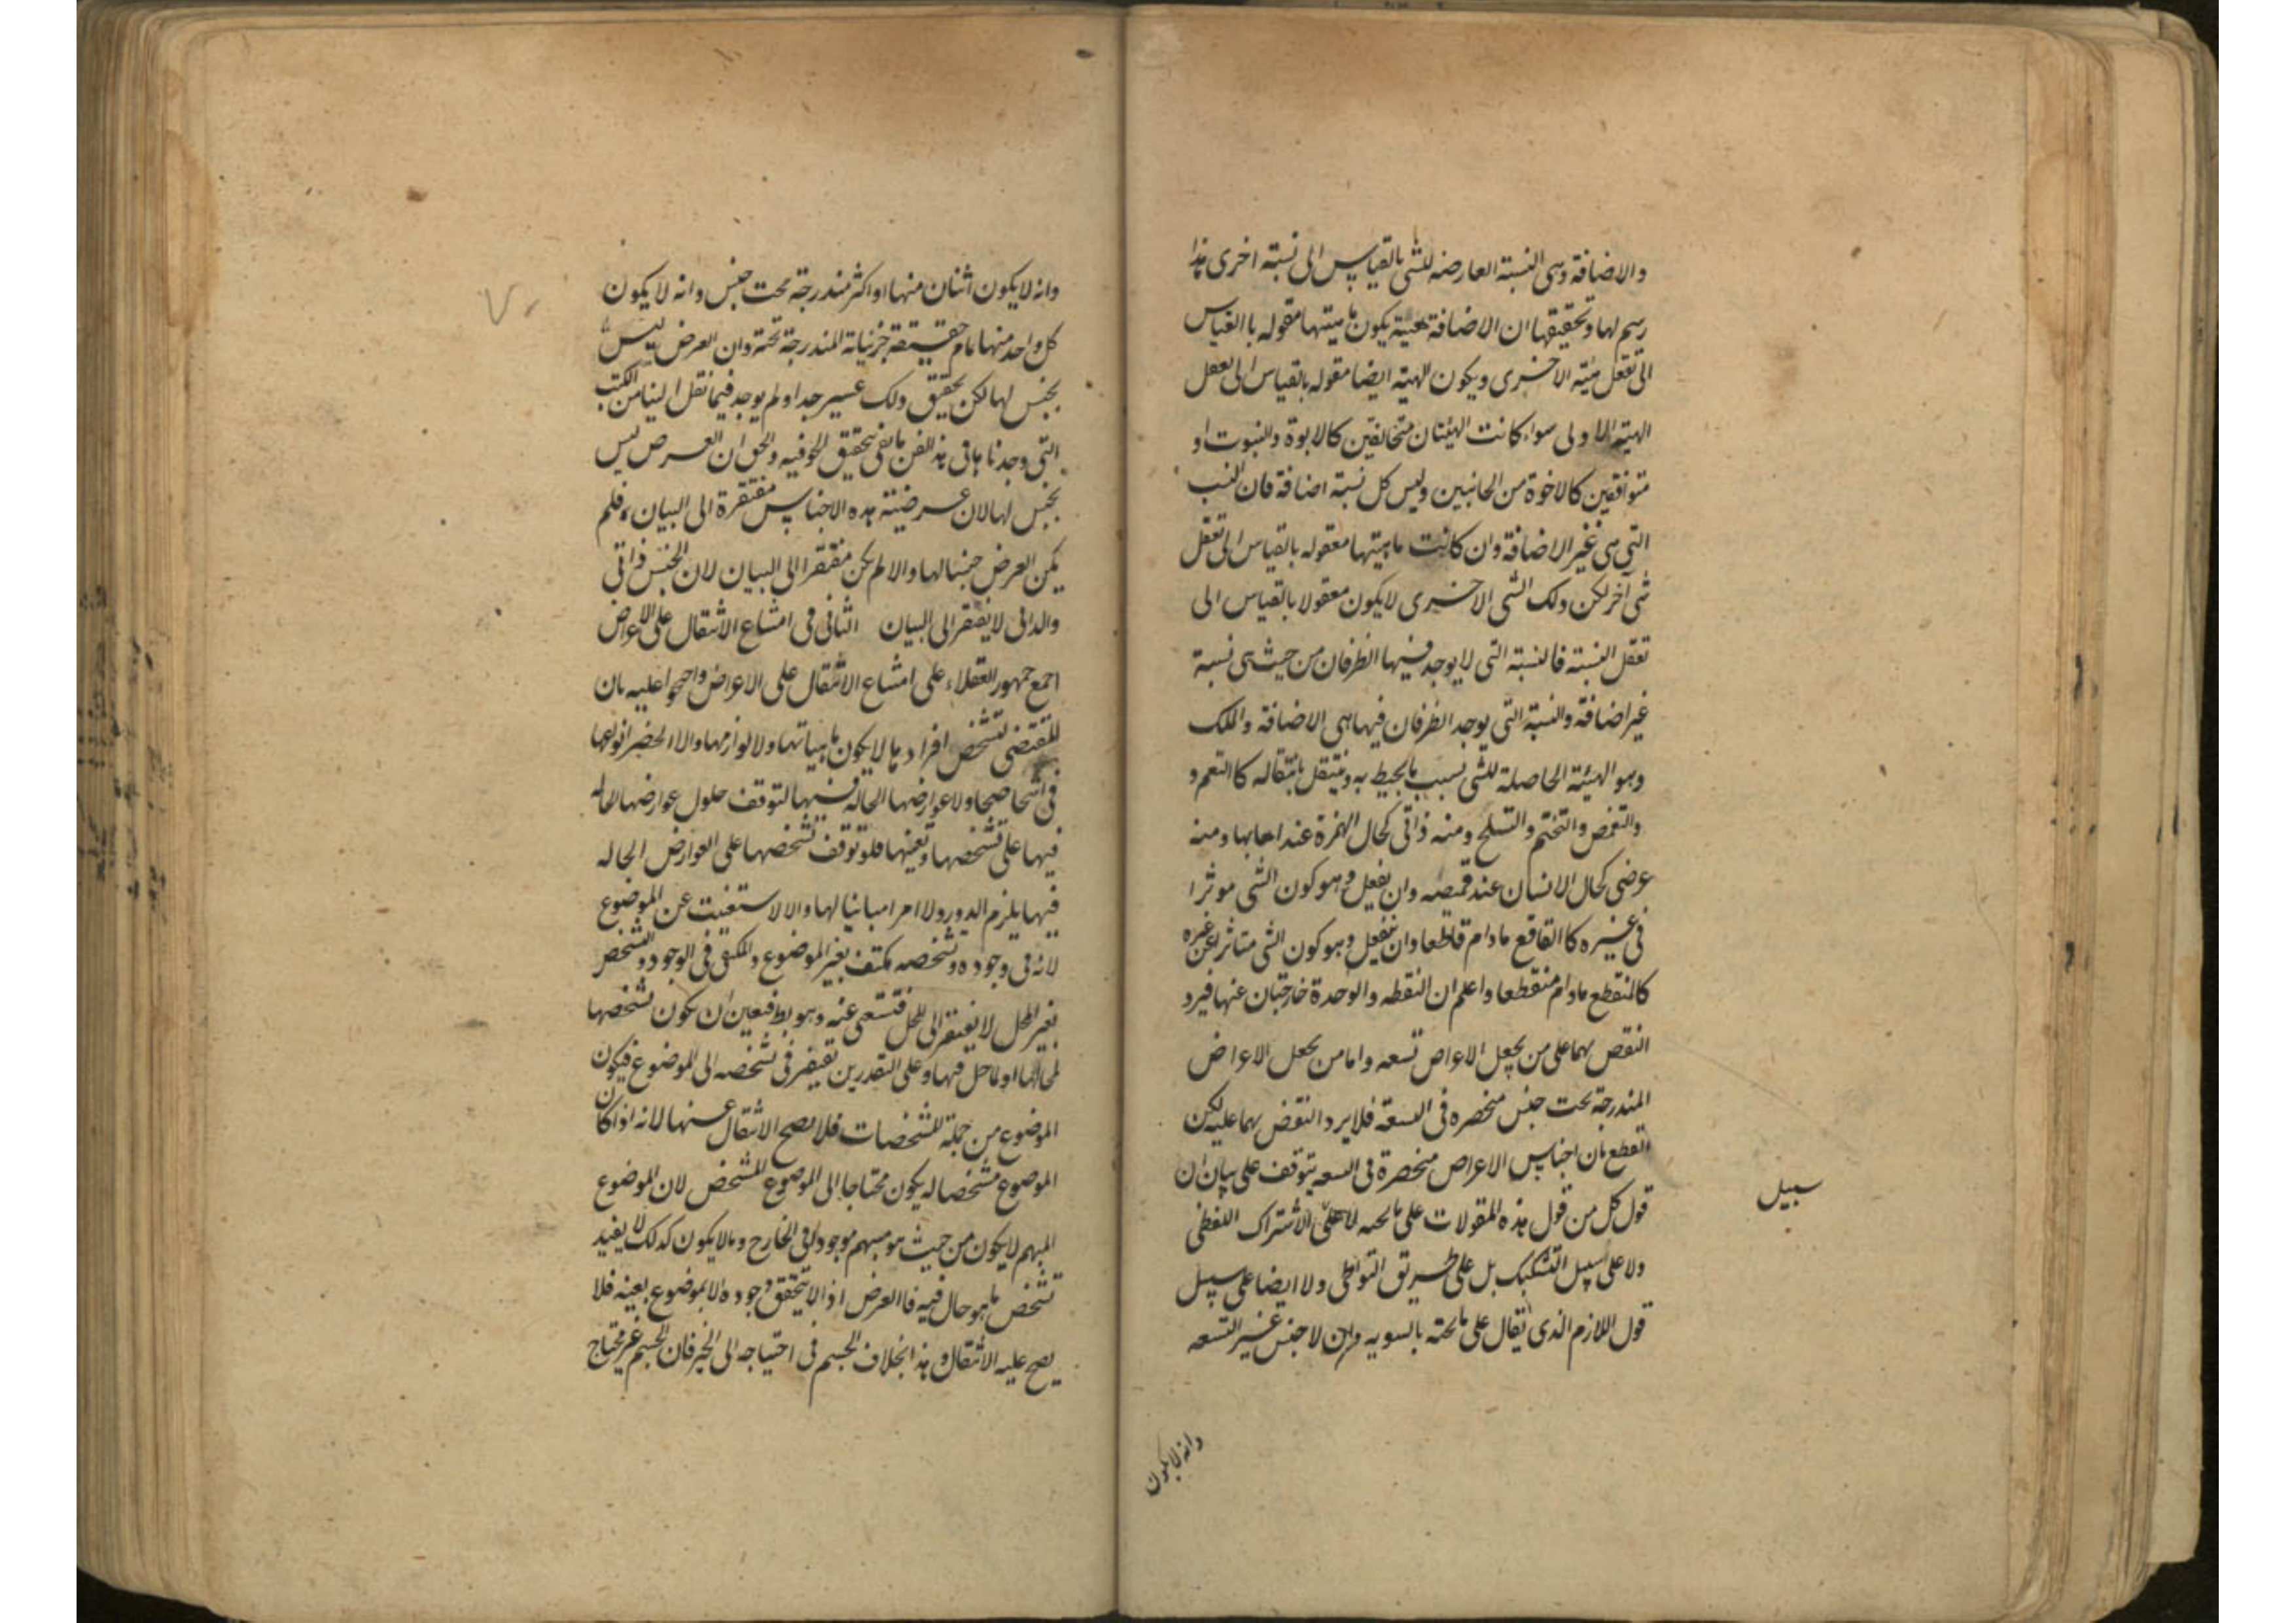 والاضافة وهى النسبة العارضه للشى بالقياس الى نسبة اخرى هذا
رسم لها وتحقيقها ان الاضافة هيئة يكون ماهيتها مقوله باالقياس
الى تعقل هيئة الاخرى ويكون الهيئة ايضا مقوله بالقياس الى تعقل
الهيئة الاولى سواء كانت الهيئتان متخالفتين كالابوة والنبوت او
متوافقين كالاخوة من الجانبين وليس كل نسبة اضافة فان النسب
التى هى غير الاضافة وان كانت ماهيتها معقوله بالقياس الى تعقل
شى آخر لكن ذلك الشى الاخرى لايكون معقولا بالقياس الى
تعقل النسبة فالنسبة التى لا يوجد فيها الطرفان من حيث هى نسبة
غير اضافة والنسبة التى يوجد الطرفان فيها هى الاضافة والملك
وهو الهيئة الحاصلة للشى بسبب ما يحيط به وينتقل بانتقاله كاالتعمم و
والتقمص والتختم والتسلح ومنه ذاتى كحال الهرة عند اهابها ومنه
عرضى كحال الانسان عند قميصه وان يفعل وهو كون الشى موثرا
فى غيره كاالقاطع مادام قاطعا وان ينفعل وهو كون الشى متاثرا عن غيره
كالمنقطع مادام منقطعا واعلم ان النقطه والوحدة خارجتان عنها فيرد
النقص بهما على من يجعل الاعراص تسعه واما من يجعل الاعراض
المندرجة تحت جنس منحصره فى التسعة فلا يرد النقض بهما عليه لكن
القطع بان اجناس الاعراص منحصرة فى التسعه يتوقف على بيان ان
قول كل من قول هذه المقولات على ما تحته لا على الاشتراك اللفظى
سبيل
ولا على سبيل التشكيك بل على طريق التواطى ولا ايضا على سبيل
قول اللازم الذى يقال على ما تحته بالسويه وان لا جنس غير التسعه
وانه لا يكون
وانه لا يكون اثنان منها او اكثر مندرجة تحت جنس وانه لا يكون
كل واحد منها تمام حقيقة جزئياته المندرجة تحته وان العرض ليس
بجنس لها لكن تحقيق ذلك عسير جدا ولم يوجد فيما نقل الينا من الكتب
التى وجدناها فى هذا الفن ما يفى بتحقيق الحق فيه والحق ان العرص ليس
بجنس لها لان عرضيته هذه الاجناس مفتقرة الى البيان فلم
يكن العرض جنسا لها والا لم يكن مفتقرا الى البيان لان الجنس ذاتى
والذاتى لا يفتقر الى البيان الثانى فى امتناع الانتقال على الاعراض
اجمع جمهور العقلاء على امتناع الانتقال على الاعراض واحتجوا عليه بان
المقتضى لتشخص افرادها لا يكون ماهياتها ولا لوازمها والا انحصر انواعها
فى اشخاصها ولا عوارضها الحالة فيها لتوقف حلول عوارضها الحاله
فيها على تشخصها وتعينها فلو توقف تشخصها على العوارض الحاله
فيها يلزم الدور ولا امرا مباينا لها والا لا ستغنيت عن الموضوع
لانه فى وجوده وتشخصه مكتف بغير الموضوع والمكتفى فى الوجود والتشخص
بغير المحل لا يفتقر الى المحل فتستغنى عنه وهو بط فتعين ان يكون تشخصها
لمحالها او لما حل فيها وعلى التقدرين تفتقر فى تشخصه الى الموضوع فيكون
الموضوع من جملة المشخصات فلا يصح الانتقال عنها لانه اذا كان
الموضوع مشخصا له يكون محتاجا الى الموضوع المشخص لان الموضوع
المبهم لا يكون من حيث هو مبهم موجودا فى الخارج وما لا يكون كذلك لا يفيد
تشخص ما هو حال فيه فاالعرض اذا لا يتحقق وجوده الا بموضوع بعينه فلا
يصح عليه الانتقال وهذا بخلاف الجسم فى احتياجه الى الحيز فان الجسم غير محتاج